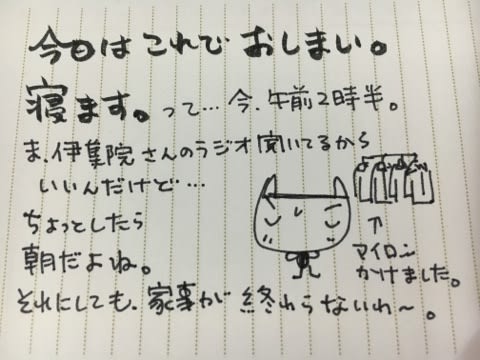 今日はこれでおしまい。
寝ます。って…今、午前2時半。
ま、伊集院さんのラジオ聞いてるから
いいんだけど…
ちょっとしたら
朝だよね。
↑
マイロン
かけました。
それにしても、家事が終わらないわ〜。